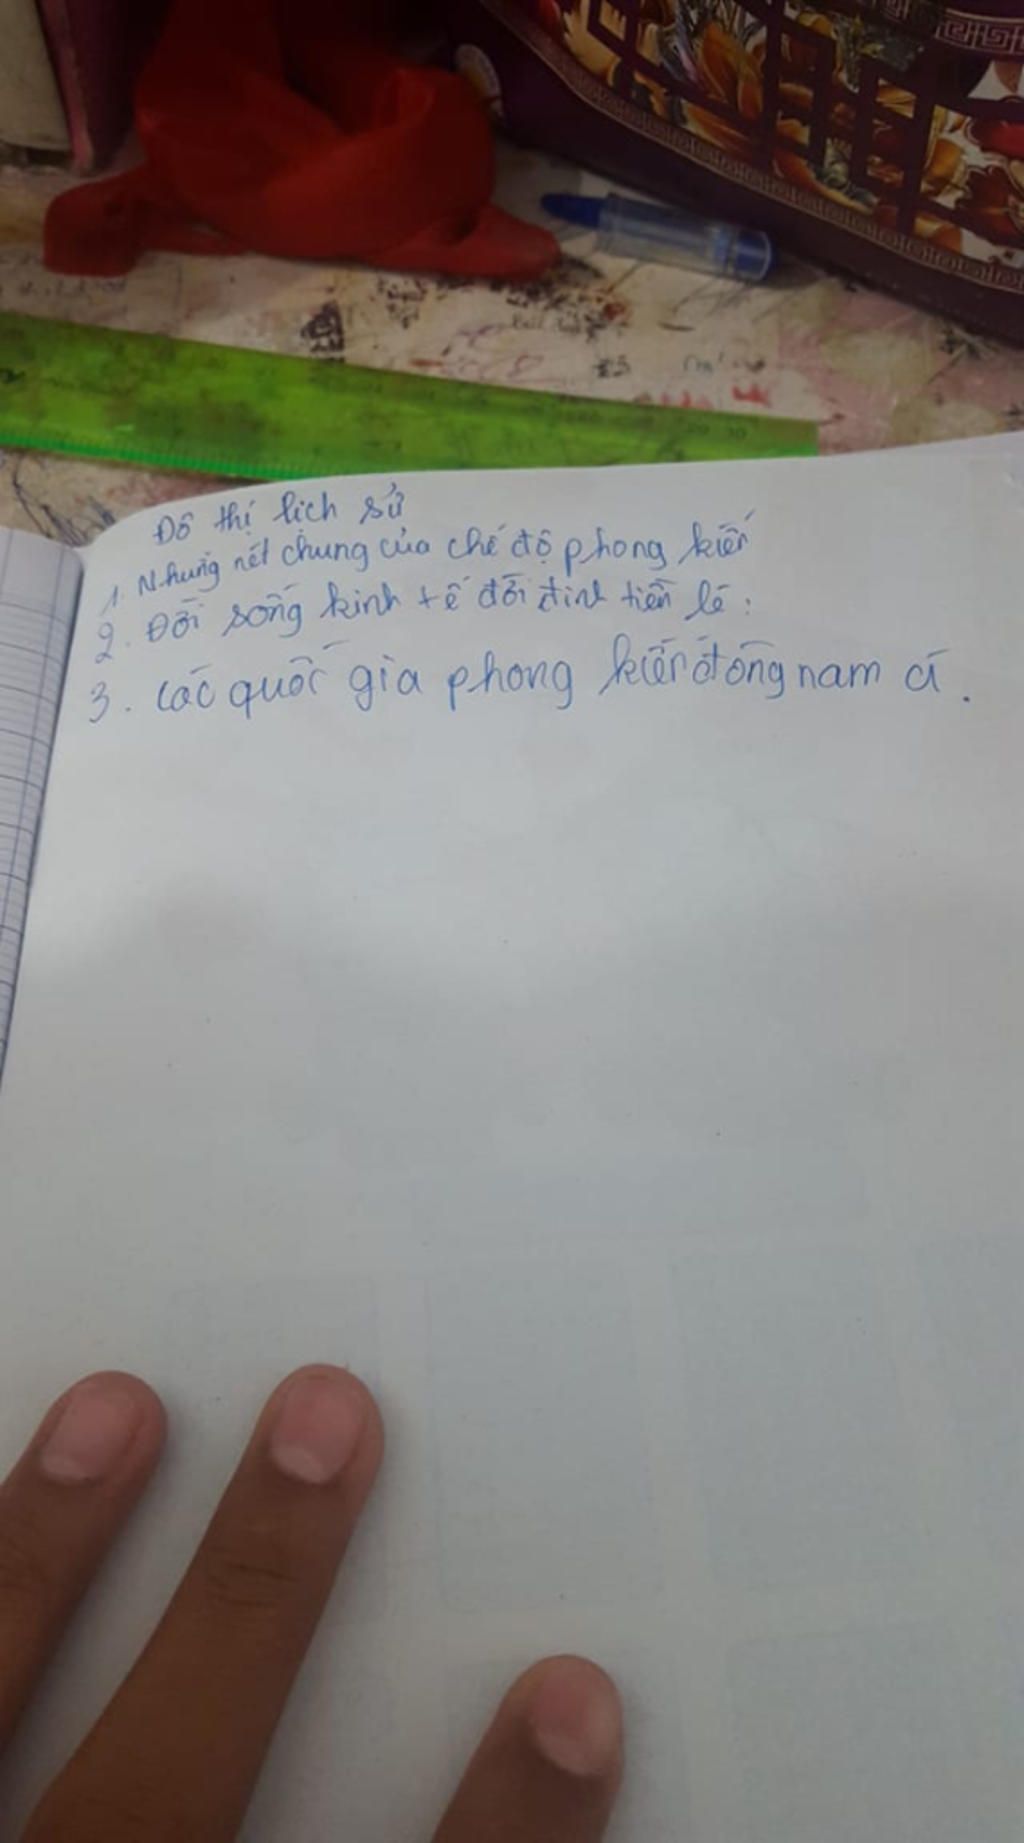 Đô thị lịch sử
1. Những nét chung của chế độ phong kiến
2. Đời sống kinh tế đời đinh tiền lê:
3. các quốc gia phong kiến đông nam á.